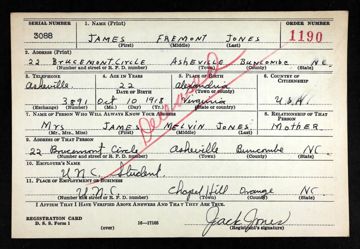 SERIAL NUMBER 1. NAME (Print) ORDER NUMBER
3088 JAMES FREMONT JONES 1190
(First) (Middle) (Last)
2. ADDRESS (Print)
22 BRUCEMONT CIRCLE ASHEVILLE BUNCOMBE N.C.
(Number and street or R. F. D. number) (Town) (County) (State)
3. TELEPHONE 4. AGE IN YEARS 5. PLACE OF BIRTH 6. COUNTRY OF CITIZENSHIP
Asheville. 22 Alexandria
DATE OF BIRTH (Town or county)
3891 Oct 10 1918 Virginia U.S.A.
(Exchange) (Number) (Mo.) (Day) (Yr.) (State or country)
7. NAME OF PERSON WHO WILL ALWAYS KNOW YOUR ADDRESS 8. RELATIONSHIP OF THAT PERSON
Mrs JAMES MELVIN JONES MOTHER.
(Mr., Mrs., Miss) (First) (Middle) (Last)
Deceased
9. ADDRESS OF THAT PERSON
22 Brucemont Circle Asheville Buncombe N.C.
(Number and street or R. F. D. number) (Town) (County) (State)
10. EMPLOYER'S NAME
U.N.C. Student.
11. PLACE OF EMPLOYMENT OR BUSINESS
U.N.C. Chapel Hill Orange N.C.
(Number and street or R. F. D. number) (Town) (County) (State)
I AFFIRM THAT I HAVE VERIFIED ABOVE ANSWERS AND THAT THEY ARE TRUE.
REGISTRATION CARD
D. S. S. Form 1 (over) 16—17105 Jack Jones
(Registrant's signature)